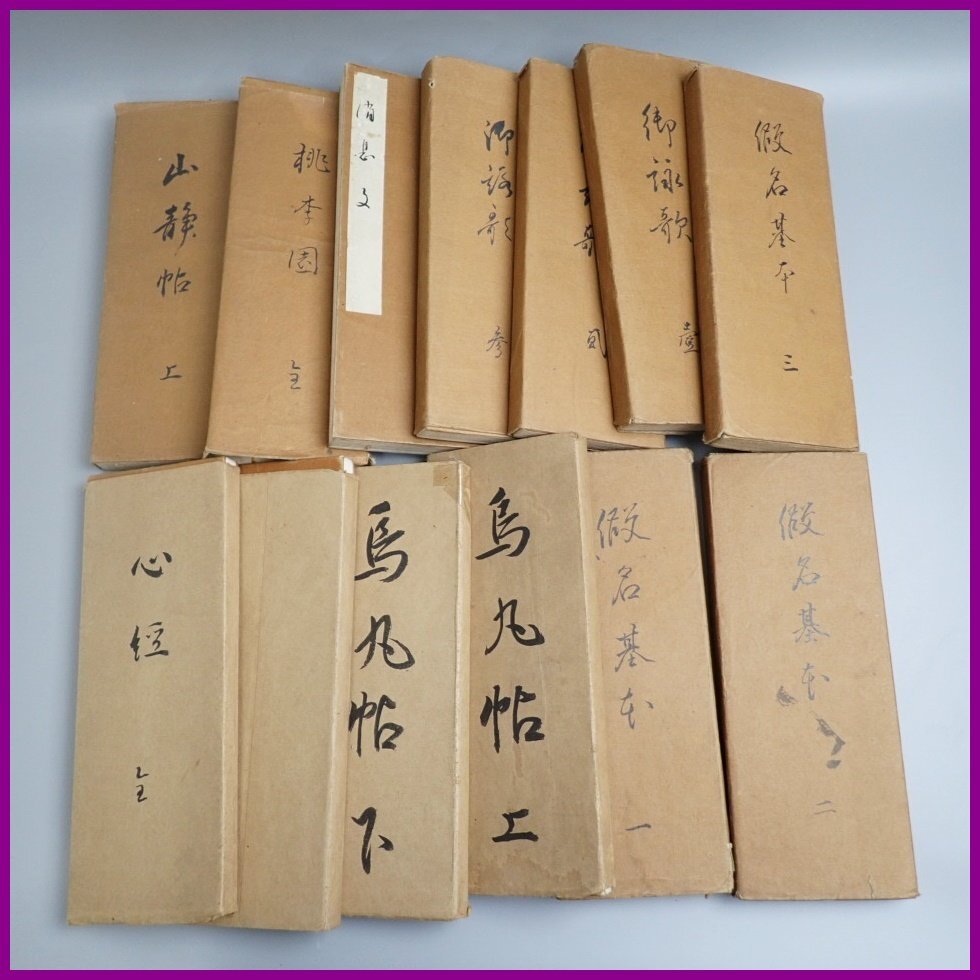 山静帖 上
桃李園 全
消息文
御詠歌 参
歌 弐
御詠歌 壹
假名基本 三
心経 全
烏丸帖 下
烏丸帖 上
假名基本 一
假名基本 二